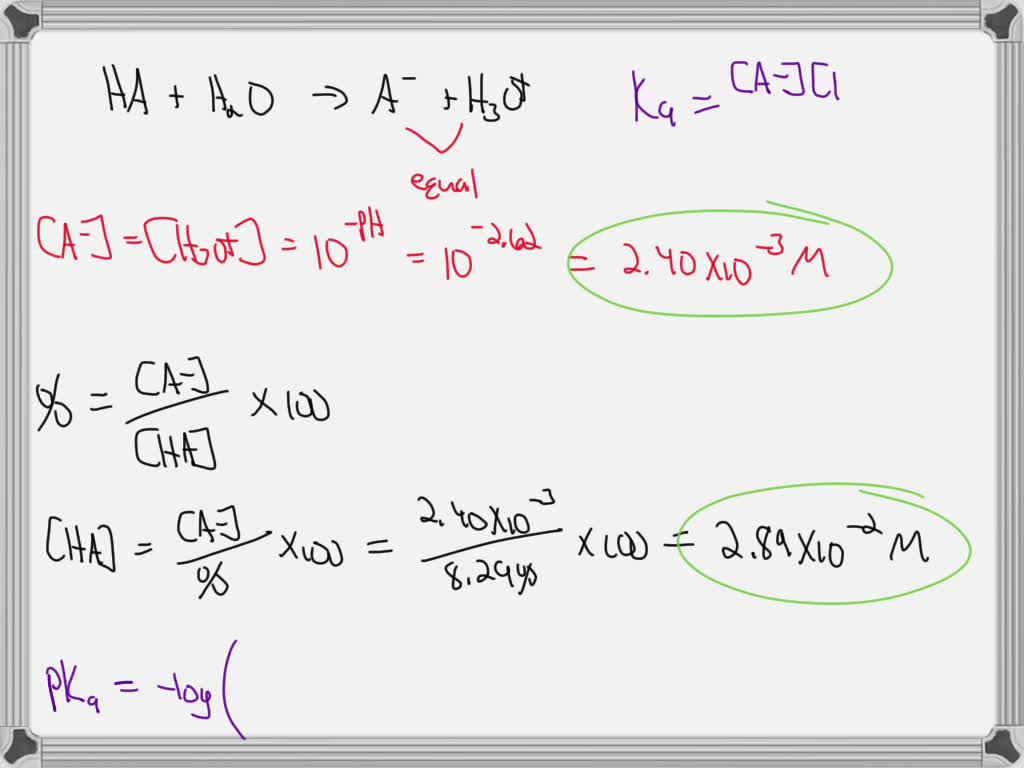 HA + H₂O → A⁻ + H₃O⁺
Ka = [A-][
equal
[A-] = [H₃O+] = 10^-PH = 10^-2.62 = 2.40 x 10^-3 M
% = [A-]/[HA] x 100
[HA] = [A-]/% x 100 = 2.40 x 10^-3/8.29% x 100 = 2.89 x 10^-2 M
PKa = -log(